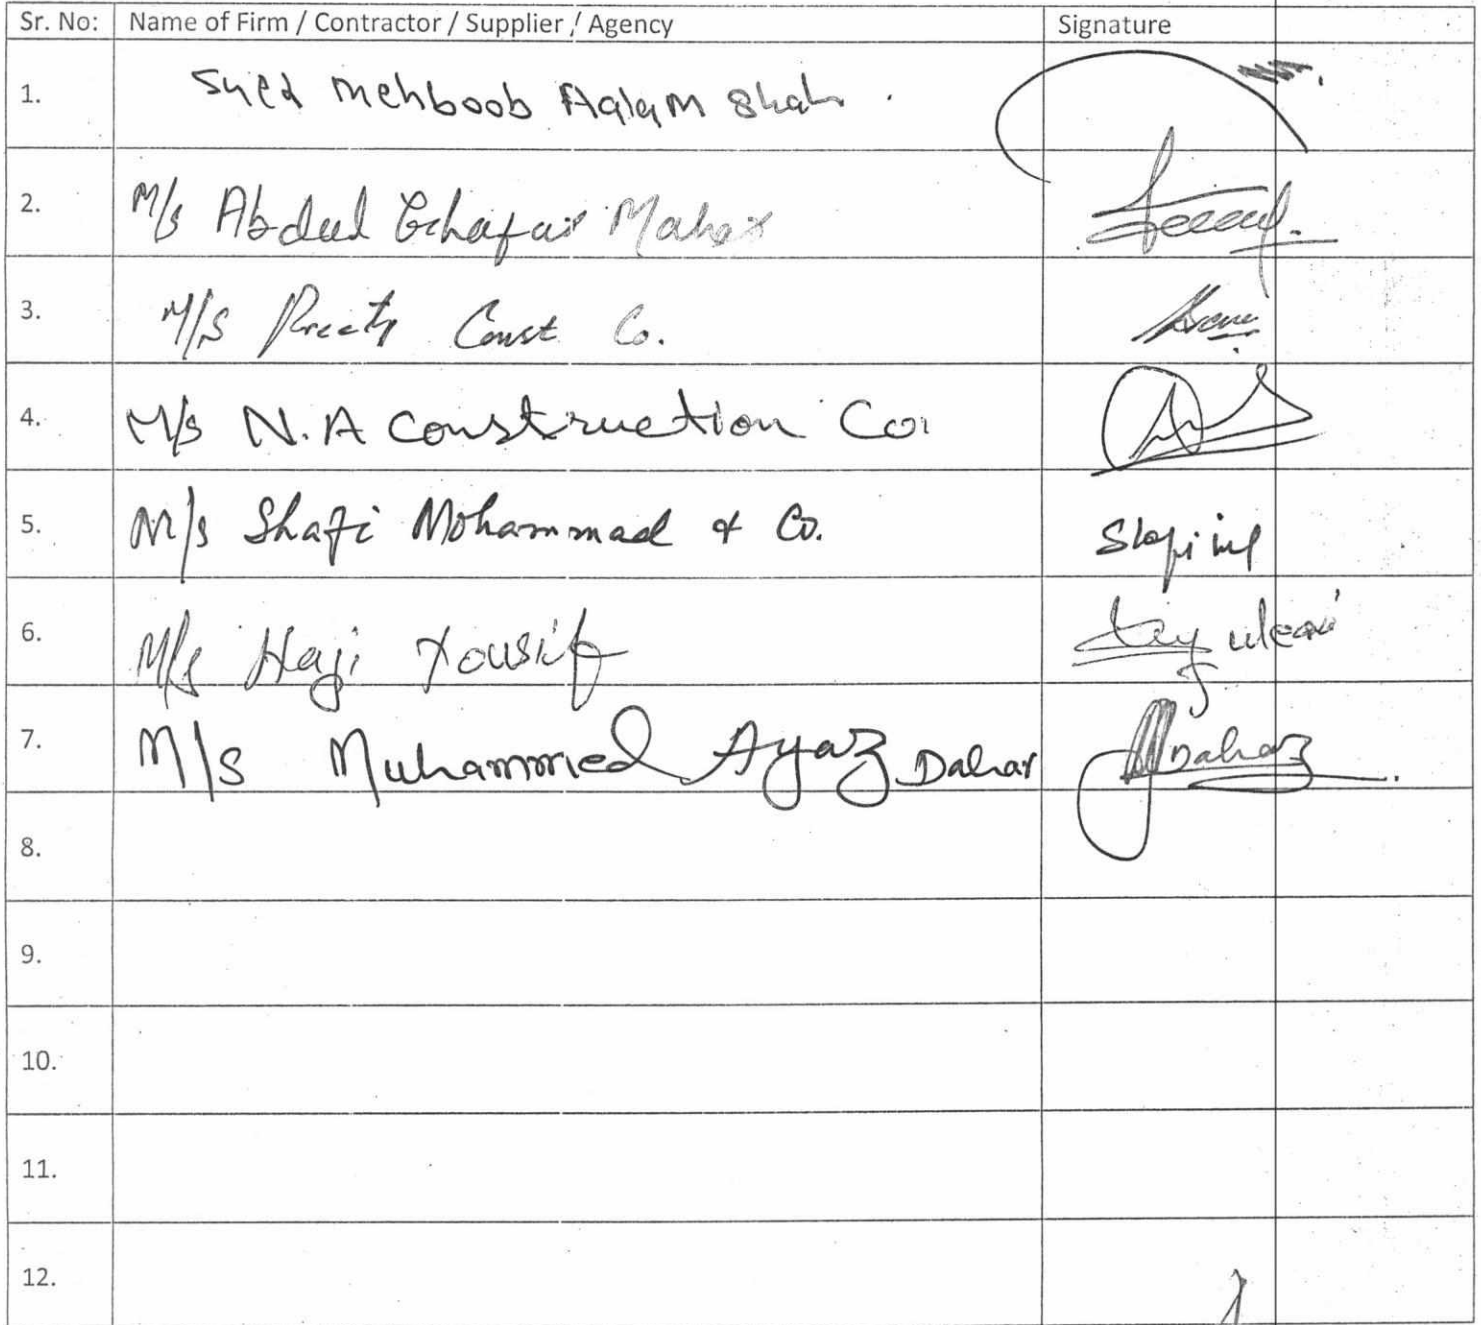 Sr. No: Name of Firm / Contractor / Supplier / Agency Signature
1. Syed Mehboob Aalam Shah .
2. M/s Abdul Ghafar Maher
3. M/S Preety Const Co.
4. M/s N.A Construction Co.
5. M/s Shafi Mohammad & Co.
6. M/s Haji Yousif
7. M/s Muhammed Ayaz Dahar Dahar
8.
9.
10.
11.
12.